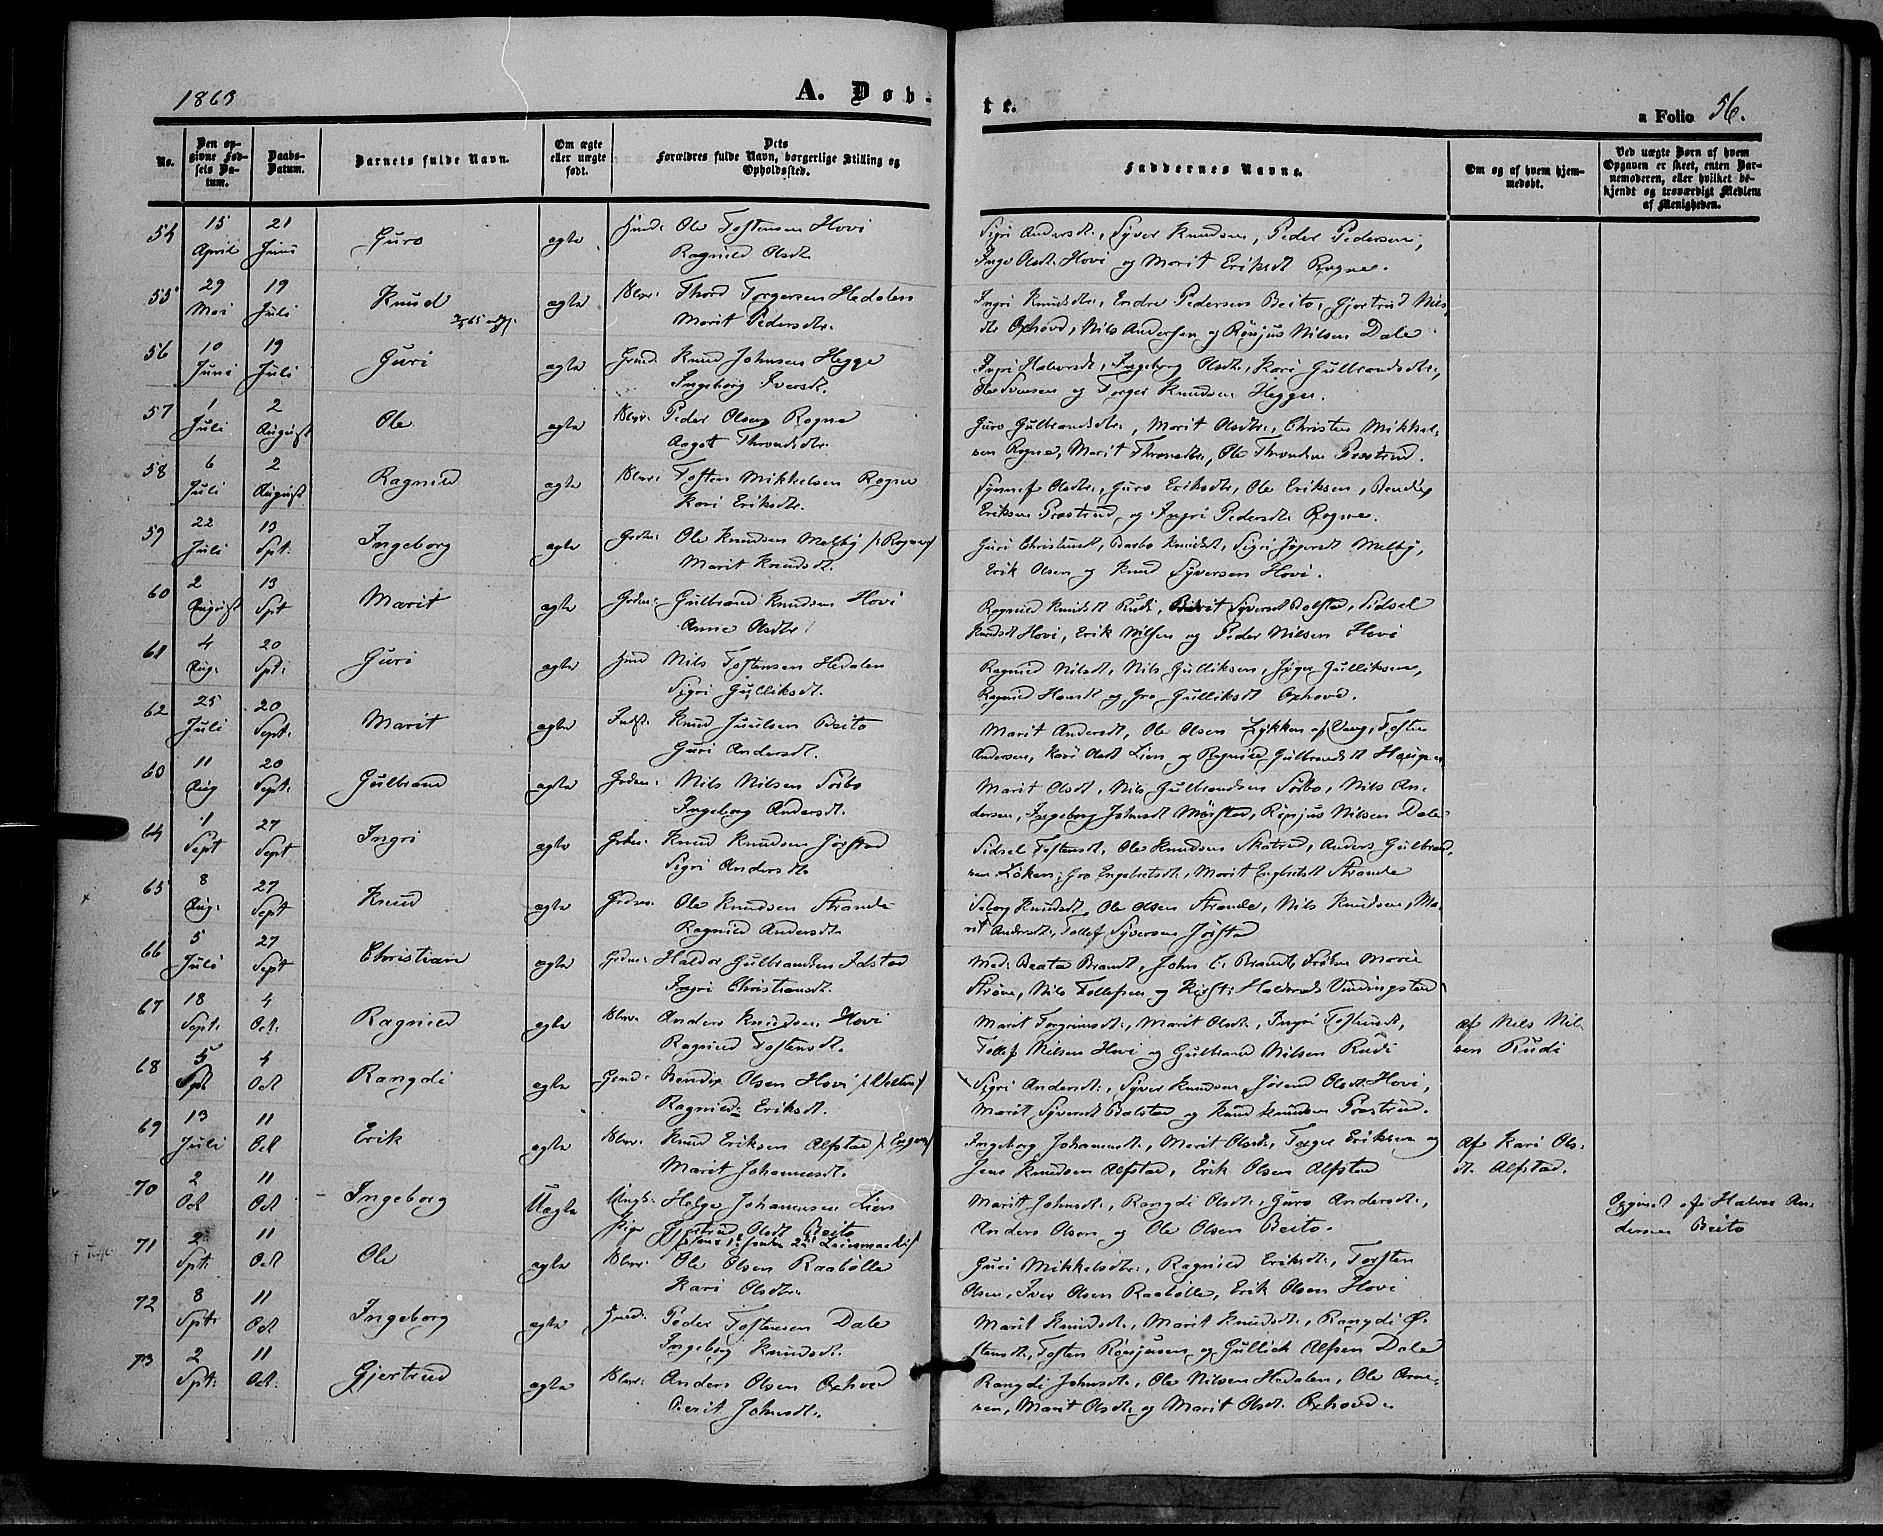 1863
A. Døb-
te.
a Folio 56.
No.
Den op-
givne Fød-
sels Da-
tum.
Daabs-
Datum.
Barnets fulde Navn.
Om ægte
eller uægte
født.
Dets
Forældres fulde Navn, borgerlige Stilling og
Opholdssted.
Faddernes Navne.
Om og af hvem hjem-
medøbt.
Ved uægte Børn af hvem
Opgaven er skeet, enten Bar-
nemoderen, eller hvilket be-
kjendt og troværdigt Medlem
af Menigheden.
54 15 April 21 Juni Guro ægte Ole Tostensen Hovi
Ragnild Olsdtr
Sigri Andersdt:, Syver Knudsen, Peder Pedersen,
Inge Olsdt. Hovi og Marit Eriksdt Rogne.
55 29 Mai 19 Juli Knud ægte Thord Torgersen Hedalen
Marit Pedersdtr.
Ingri Knudsdtr:, Endre Pedersen Beito, Gjertrud Nils
dtr Oxhovd, Nils Andersen og Rønjus Nilsen Dale
56 10 Juni 19 Juli Guri ægte Knud Johnsen Hegge
Ingeborg Iversdt.
Ingri Halvorsdt, Ingeborg Olsdtr, Kari Gulbrandsdtr.,
Ole Svensen og Torger Knudsen Hegge.
57 1 Juli 2 August Ole ægte Peder Olsen Rogne
Aagot Throndsdtr.
Guro Gulbrandsdtr., Marit Olsdtr:, Christen Mikkel-
sen Rogne, Marit Throndsdtr., Ole Thronsen Præstrud.
58 6 Juli 2 August Ragnild ægte Tosten Mikkelsen Rogne
Kari Eriksdtr.
Synnef Olsdtr:, Guro Eriksdtr, Ole Eriksen, Bendix
Eriksen Præstrud, og Ingri Pedersdt. Rogne.
59 22 Juli 13 Spt: Ingeborg ægte Ole Knudsen Melby /: Rogne/
Marit Knudsdt.
Guri Christensdt, Barbo Knudsdt, Sigri Melby,
Erik Olsen og Knud Syversen Hovi.
60 2 August 13 Spt Marit ægte Gulbrand Knudsen Hovi
Anne Olsdtr.
Ragnild Knudsdt Rudi, Syversdt Bolstad, Sidsel
Knudsdt Hovi, Erik Nilsen og Peder Nilsen Hovi
61 4 Aug. 20 Spt: Guri ægte Nils Tostensen Hedalen
Sigri Gulliksdt.
Ragnild Nilsdt, Nils Gulliksen, Gulliksen,
Ragnild Hansdt og Gro Gulliksdt Oxhovd.
62 25 Juli 20 Sept: Marit ægte Knud Juulsen Beito
Guri Andersdt.
Marit Andersdt, Ole Olsen Lykken af Vang, Tosten
Andersen, Kari Olsdt Lien og Ragnild Gulbrandsdt Hauge
63 11 Aug 20 Sept: Gulbrand ægte Nils Nilsen Sørbo
Ingeborg Andersdt.
Marit Olsdt, Nils Gulbrandsen Sørbo, Nils An-
dersen, Ingeborg Johnsdt Mørstad, Rønjus Nilsen Dale
64 1 Sept 27 Sept Ingri ægte Knud Knudsen Jørstad
Sigri Andersdt.
Sidsel Tostensdt, Ole Knudsen Skatrud, Anders Gulbrand-
sen Løken, Gro Engebretsdt., Marit Engebretsdt Strande
65 8 Aug. 27 Sept Knud ægte Ole Knudsen Strande
Ragnild Andersdt.
Siborg Knudsdt, Ole Olsen Strande, Nils Knudsen, Ma-
rit Andersdt, Tollef Syversen Jørstad
66 5 Juli 27 Sept Christian ægte Haldor Gulbrandsen Ildstad
Ingri Christiansdt.
Mad: Beata Brandt, John C: Brandt, Frøken Marie
Strøm, Nils Tollefsen og Kirsti Haldorsdt Vindingstad
67 18 Sept: 4 Oct: Ragnild ægte Anders Knudsen Hovi
Ragnild Tostensdt.
Marit Torgrimsdt., Marit Olsdt, Ingri Tostensdt,
Tollef Nilsen Hovi og Gulbrand Nilsen Rudi
Af Nils Nil-
sen Rudi
68 5 Spt 4 Oct Rangdi ægte Bendix Olsen Hovi
Ragnild Eriksdt.
Sigri Andersdt., Syver Knudsen, Jørend Olsdt. Hovi,
Marit Syversdt Bolstad og Knud Knudsen Præstrud.
69 13 Juli 11 Oct Erik ægte Knud Eriksen Alfstad
Marit Johannesdt.
Ingeborg Johannesdt., Marit Olsdt., Torger Eriksen og
Jens Knudsen Alfstad, Erik Olsen Alfstad
Af Kari Ols-
dt. Alfstad.
70 2 Oct 11 Oct Ingeborg Uægte Ungk: Helge Johannesen Lien
Pige Gjertrud Olsdt Beito
Marit Johnsdt., Rangdi Olsdt., Guro Andersdt.,
Anders Olsen og Ole Olsen Beito.
Opgivet af Halvor An-
dersen Beito
71 2 Spt: 11 Oct Ole ægte Ole Olsen Raabølle
Kari Olsdtr.
Guri Mikkelsdtr., Ragnild Eriksdt., Torsten
Olsen, Iver Olsen Raabølle, Erik Olsen Hovi
72 8 Spt: 11 Oct Ingeborg ægte Peder Tostensen Dale
Ingeborg Knudsdt.
Marit Knudsdt., Marit Knudsdt, Rangdi Ø-
stensdt, Tosten Rønjusen og Gullick Alfsen Dale
73 2 Spt: 11 Oct: Gjertrud ægte Anders Olsen Oxhovd
Berit Johnsdt.
Rangdi Johnsdt., Ole Nilsen Hedalen, Ole Arne-
sen, Marit Olsdt. og Marit Olsdt. Oxhovd.